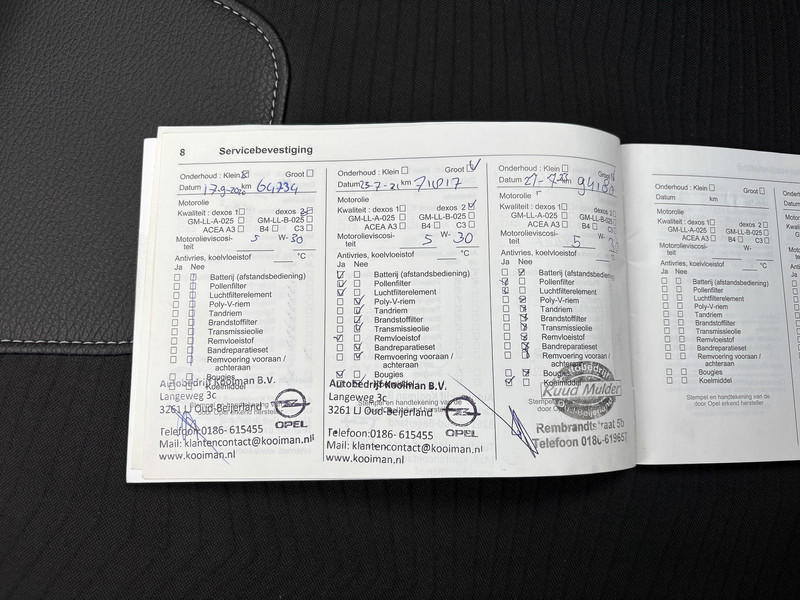 8 Servicebevestiging
Onderhoud : Klein Groot
Datum 17-9-2020 km 64734
Motorolie
Kwaliteit : dexos 1 dexos 2
GM-LL-A-025 GM-LL-B-025
ACEA A3 B4 C3
Motorolieviscosi- 5 W- 30
teit
Antivries, koelvloeistof °C
Ja Nee
Batterij (afstandsbediening)
Pollenfilter
Luchtfilterelement
Poly-V-riem
Tandriem
Brandstoffilter
Transmissieolie
Remvloeistof
Bandreparatieset
Remvoering vooraan /
achteraan
Bougies
Koelmiddel
Autobedrijf Kooiman B.V.
Langeweg 3c
3261 LJ Oud-Beijerland
OPEL
Telefoon:0186- 615455
Mail: klantencontact@kooiman.nl
www.kooiman.nl
Onderhoud : Klein Groot
Datum 23-7-21 km 71017
Motorolie
Kwaliteit : dexos 1 dexos 2
GM-LL-A-025 GM-LL-B-025
ACEA A3 B4 C3
Motorolieviscosi- 5 W- 30
teit
Antivries, koelvloeistof °C
Ja Nee
Batterij (afstandsbediening)
Pollenfilter
Luchtfilterelement
Poly-V-riem
Tandriem
Brandstoffilter
Transmissieolie
Remvloeistof
Bandreparatieset
Remvoering vooraan /
achteraan
Bougies
Autobedrijf Kooiman B.V.
Langeweg 3c
Stempel en handtekening van de
3261 LJ Oud-Beijerland
OPEL
Telefoon:0186- 615455
Mail: klantencontact@kooiman.nl
www.kooiman.nl
Onderhoud : Klein
Datum km
Motorolie
Kwaliteit : dexos 1 dexos
GM-LL-A-025 GM-LL-B-025
ACEA A3 B4 C3
Motorolieviscosi- 5 W-
teit
Antivries, koelvloeistof
Ja Nee
Batterij (afstandsbediening
Pollenfilter
Luchtfilterelement
Poly-V-riem
Tandriem
Brandstoffilter
Transmissieolie
Remvloeistof
Bandreparatieset
Remvoering vooraan /
achteraan
Bougies
Koelmiddel
Autobedrijf
Ruud Mulder
Rembrandtstraat 5b
Telefoon 0186-619657
Onderhoud : Klein Groot
Datum km
Motorolie
Kwaliteit : dexos 1 dexos 2
GM-LL-A-025 GM-LL-B-025
ACEA A3 B4 C3
Motorolieviscosi- W-
teit
Antivries, koelvloeistof °C
Ja Nee
Batterij (afstandsbediening)
Pollenfilter
Luchtfilterelement
Poly-V-riem
Tandriem
Brandstoffilter
Transmissieolie
Remvloeistof
Bandreparatieset
Remvoering vooraan /
achteraan
Bougies
Koelmiddel
Stempel en handtekening van de
door Opel erkend hersteller